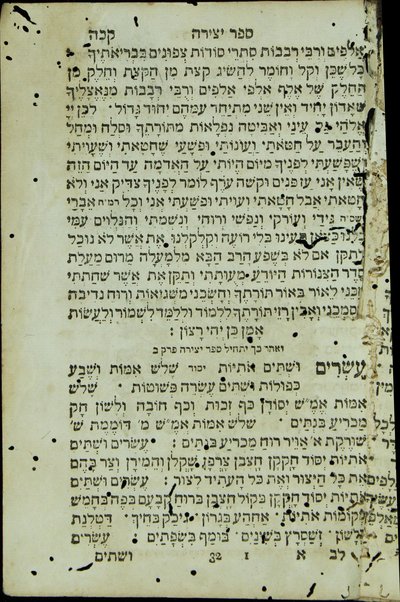 ספר יצירה קכה
אלפים ורבי רבבות סתרי סודות צפונים בבריאותיך
כל שכן וקל וחומר להשיג קצת מן הקצת וחלק מן
החלק של אלף אלפי אלפים ורבי רבבות מנאצליך
שאדון יחיד ואין שני מתיחד עמהם יחוד גדול לכן יי
אלהי גל עיני ואביטה נפלאות מתורתך וסלח ומחל
והעבר על חטאתי ועונותי ופשעי שחטאתי ושעויתי
ושפשעתי לפניך מיום היותי על האדמה עד היום הזה
שאין אני עז פנים וקשה עורף לומר לפניך צדיק אני ולא
חטאתי אבל חטאתי ועויתי ופשעתי אני וכל אברי
גידי ועורקי ונפשי ורוחי ונשמתי והנלוים עמי
תעינו כצאן בלי רועה וקלקלנו את אשר לא נוכל
לתקן אם לא בשפע הרב הבא מלמעלה מרום מעלת
סדר הצנורות היודע מעותתי ותתקן את אשר שחתתי
וזכני לאור באור תורתך וחשכני משגיאות ורוח נדיבה
תסמכני ואבין רזי תורתך ללמוד וללמד לשמור ולעשות
אמן כן יהי רצון :
ואחר כך יתחיל ספר יצירה פרק ב
עשרים ושתים אותיות יסוד שלש אמות ושבע
כפולות ושתים עשרה פשוטות שלש
אמות אמ״ש יסודן כף זכות וכף חובה ולשון חק
מכריע בנתים : שלש אמות אמ״ש מ׳ דוממת ש׳
שורקת א׳ אויר רוח מכריע בנתים : עשרים ושתים
אותיות יסוד חקקן חצבן צרפן שקלן והמירן וצר בהם
את כל היצור ואת כל העתיד לצור : עשרים ושתים
אותיות יסוד חקקן בקול חצבן ברוח קבען בפה בחמש
מקומות אותיות אחהע בגרון גיכק בחיך דטלנת
בלשון זשסרץ בשינים בומף בשפתים : עשרים
לב א 1 32 ושתים